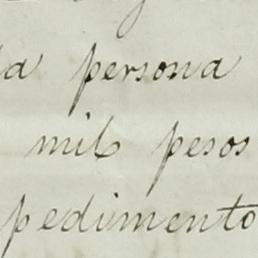 da persona
mil pesos
pedimento